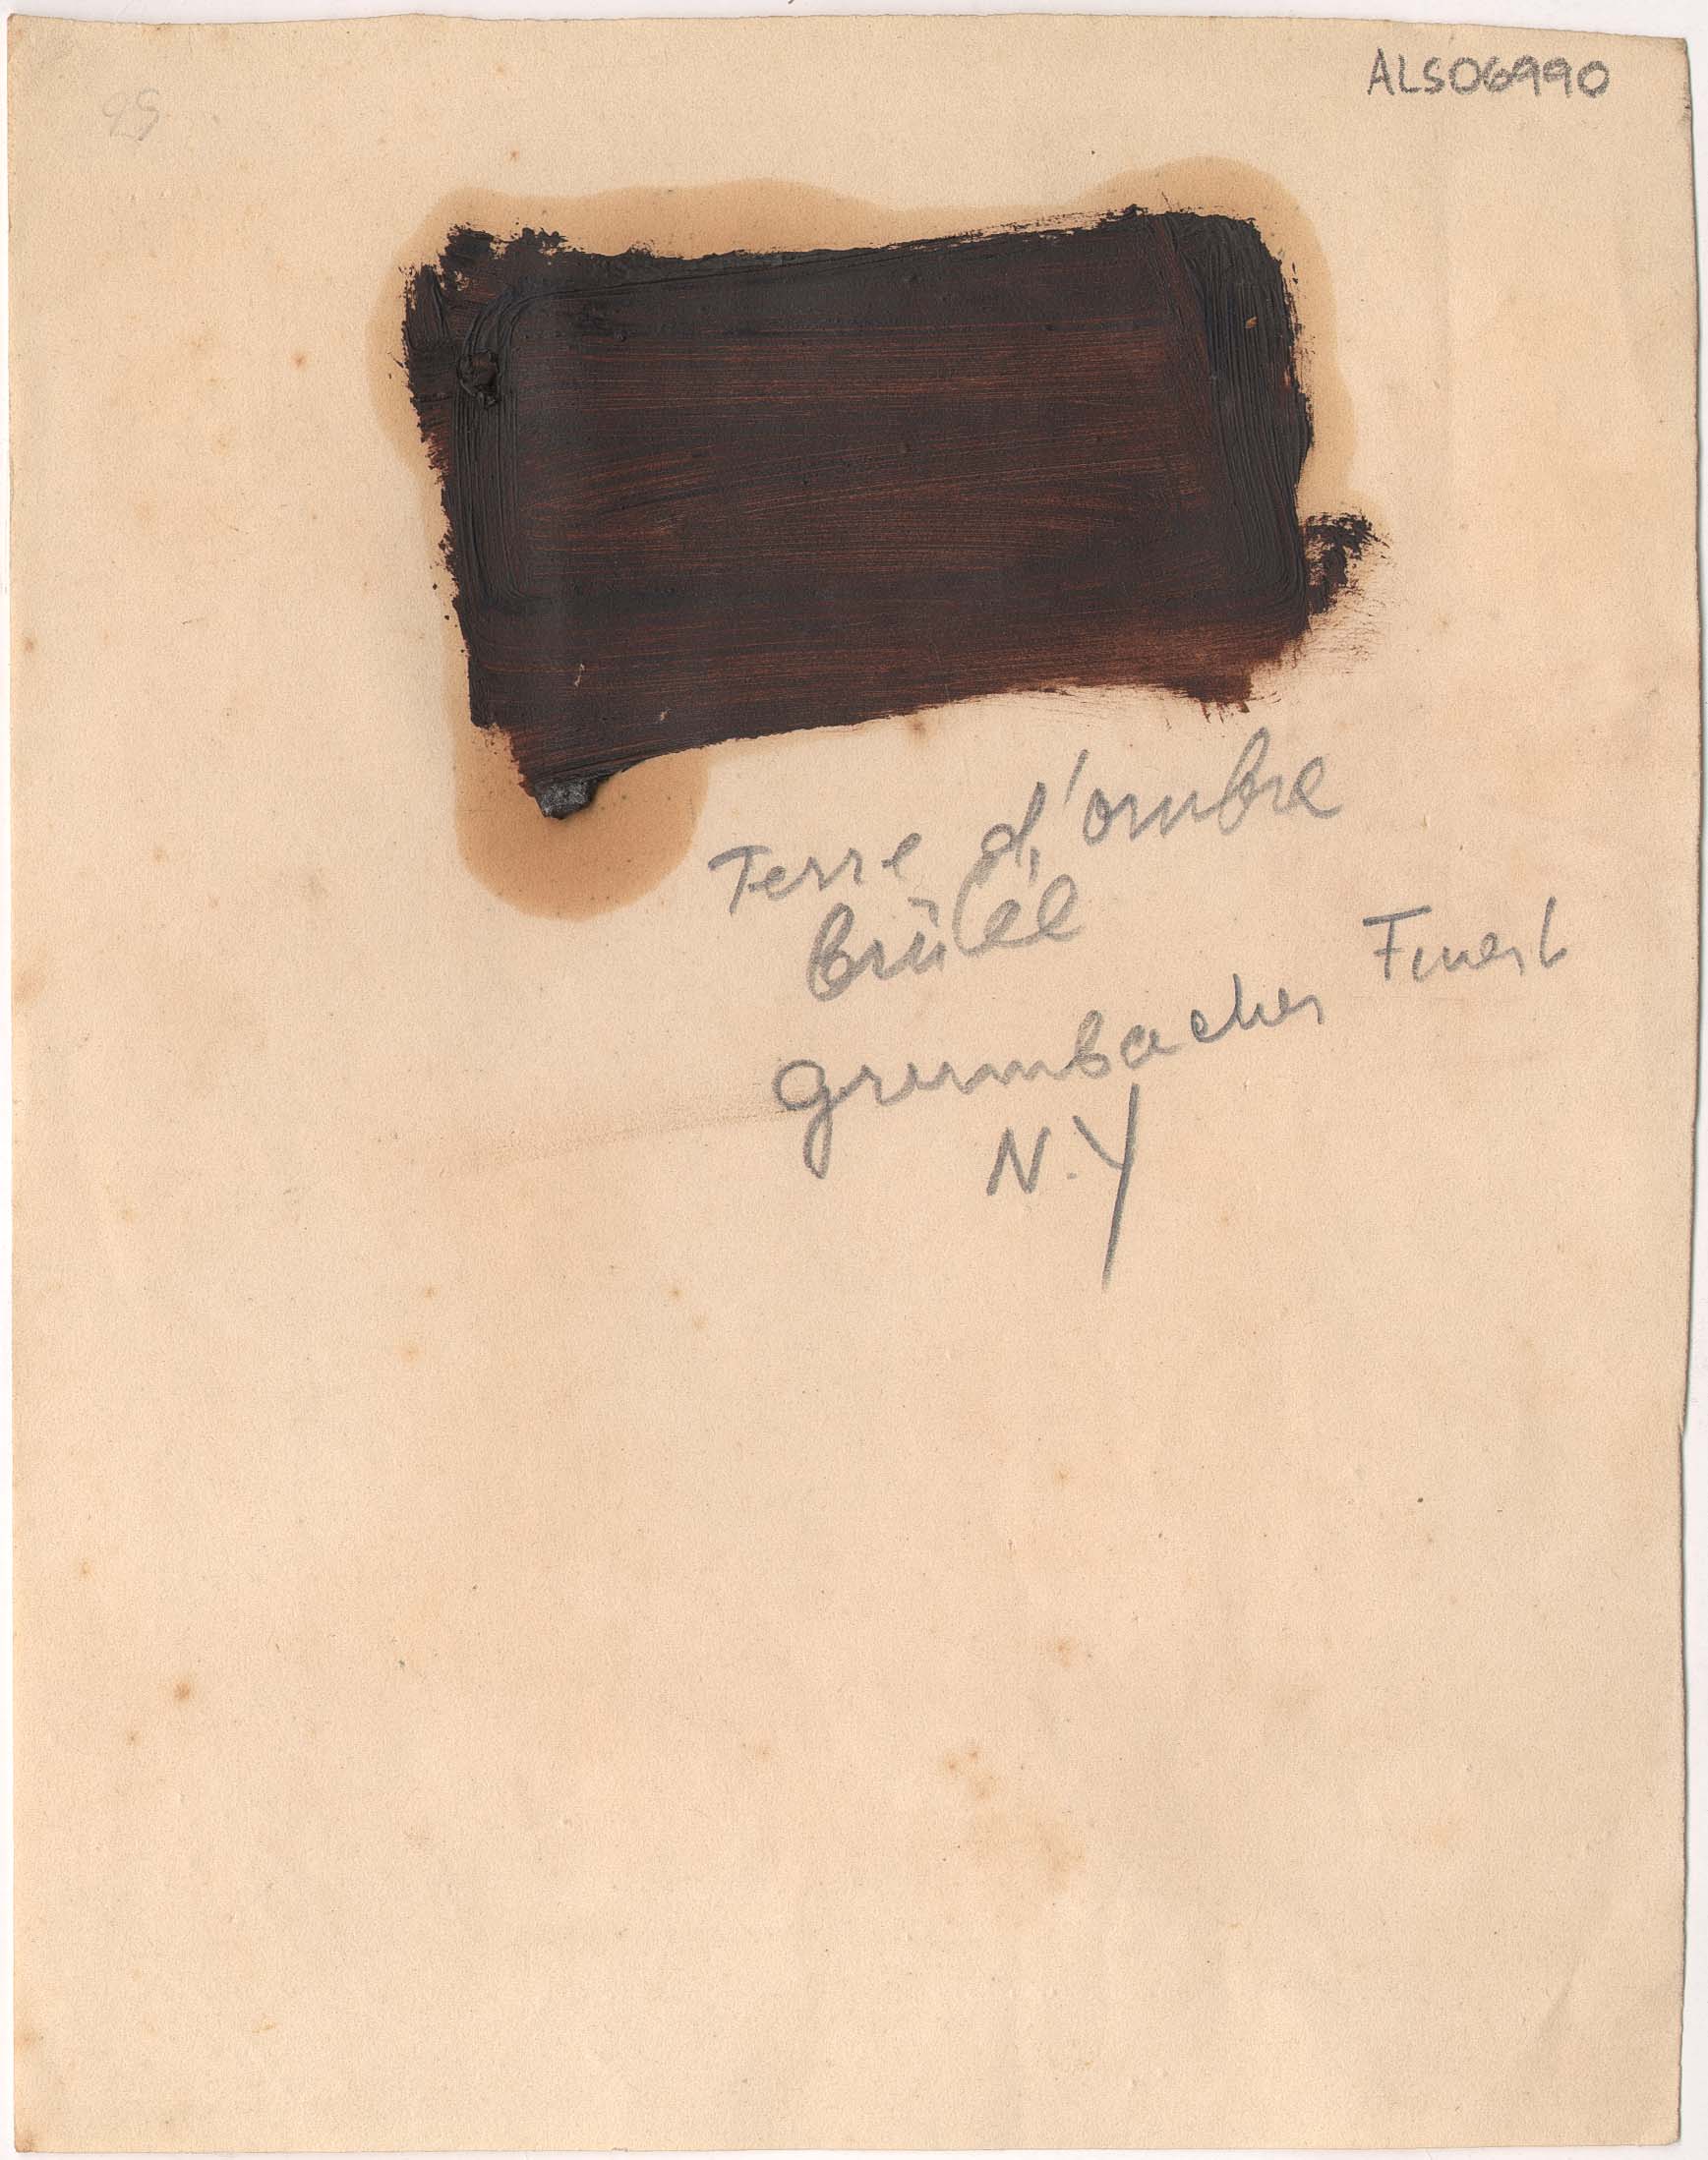 ALS06990
95
Terre d'ombre
brûlée
Grumbacher Finest
N.Y